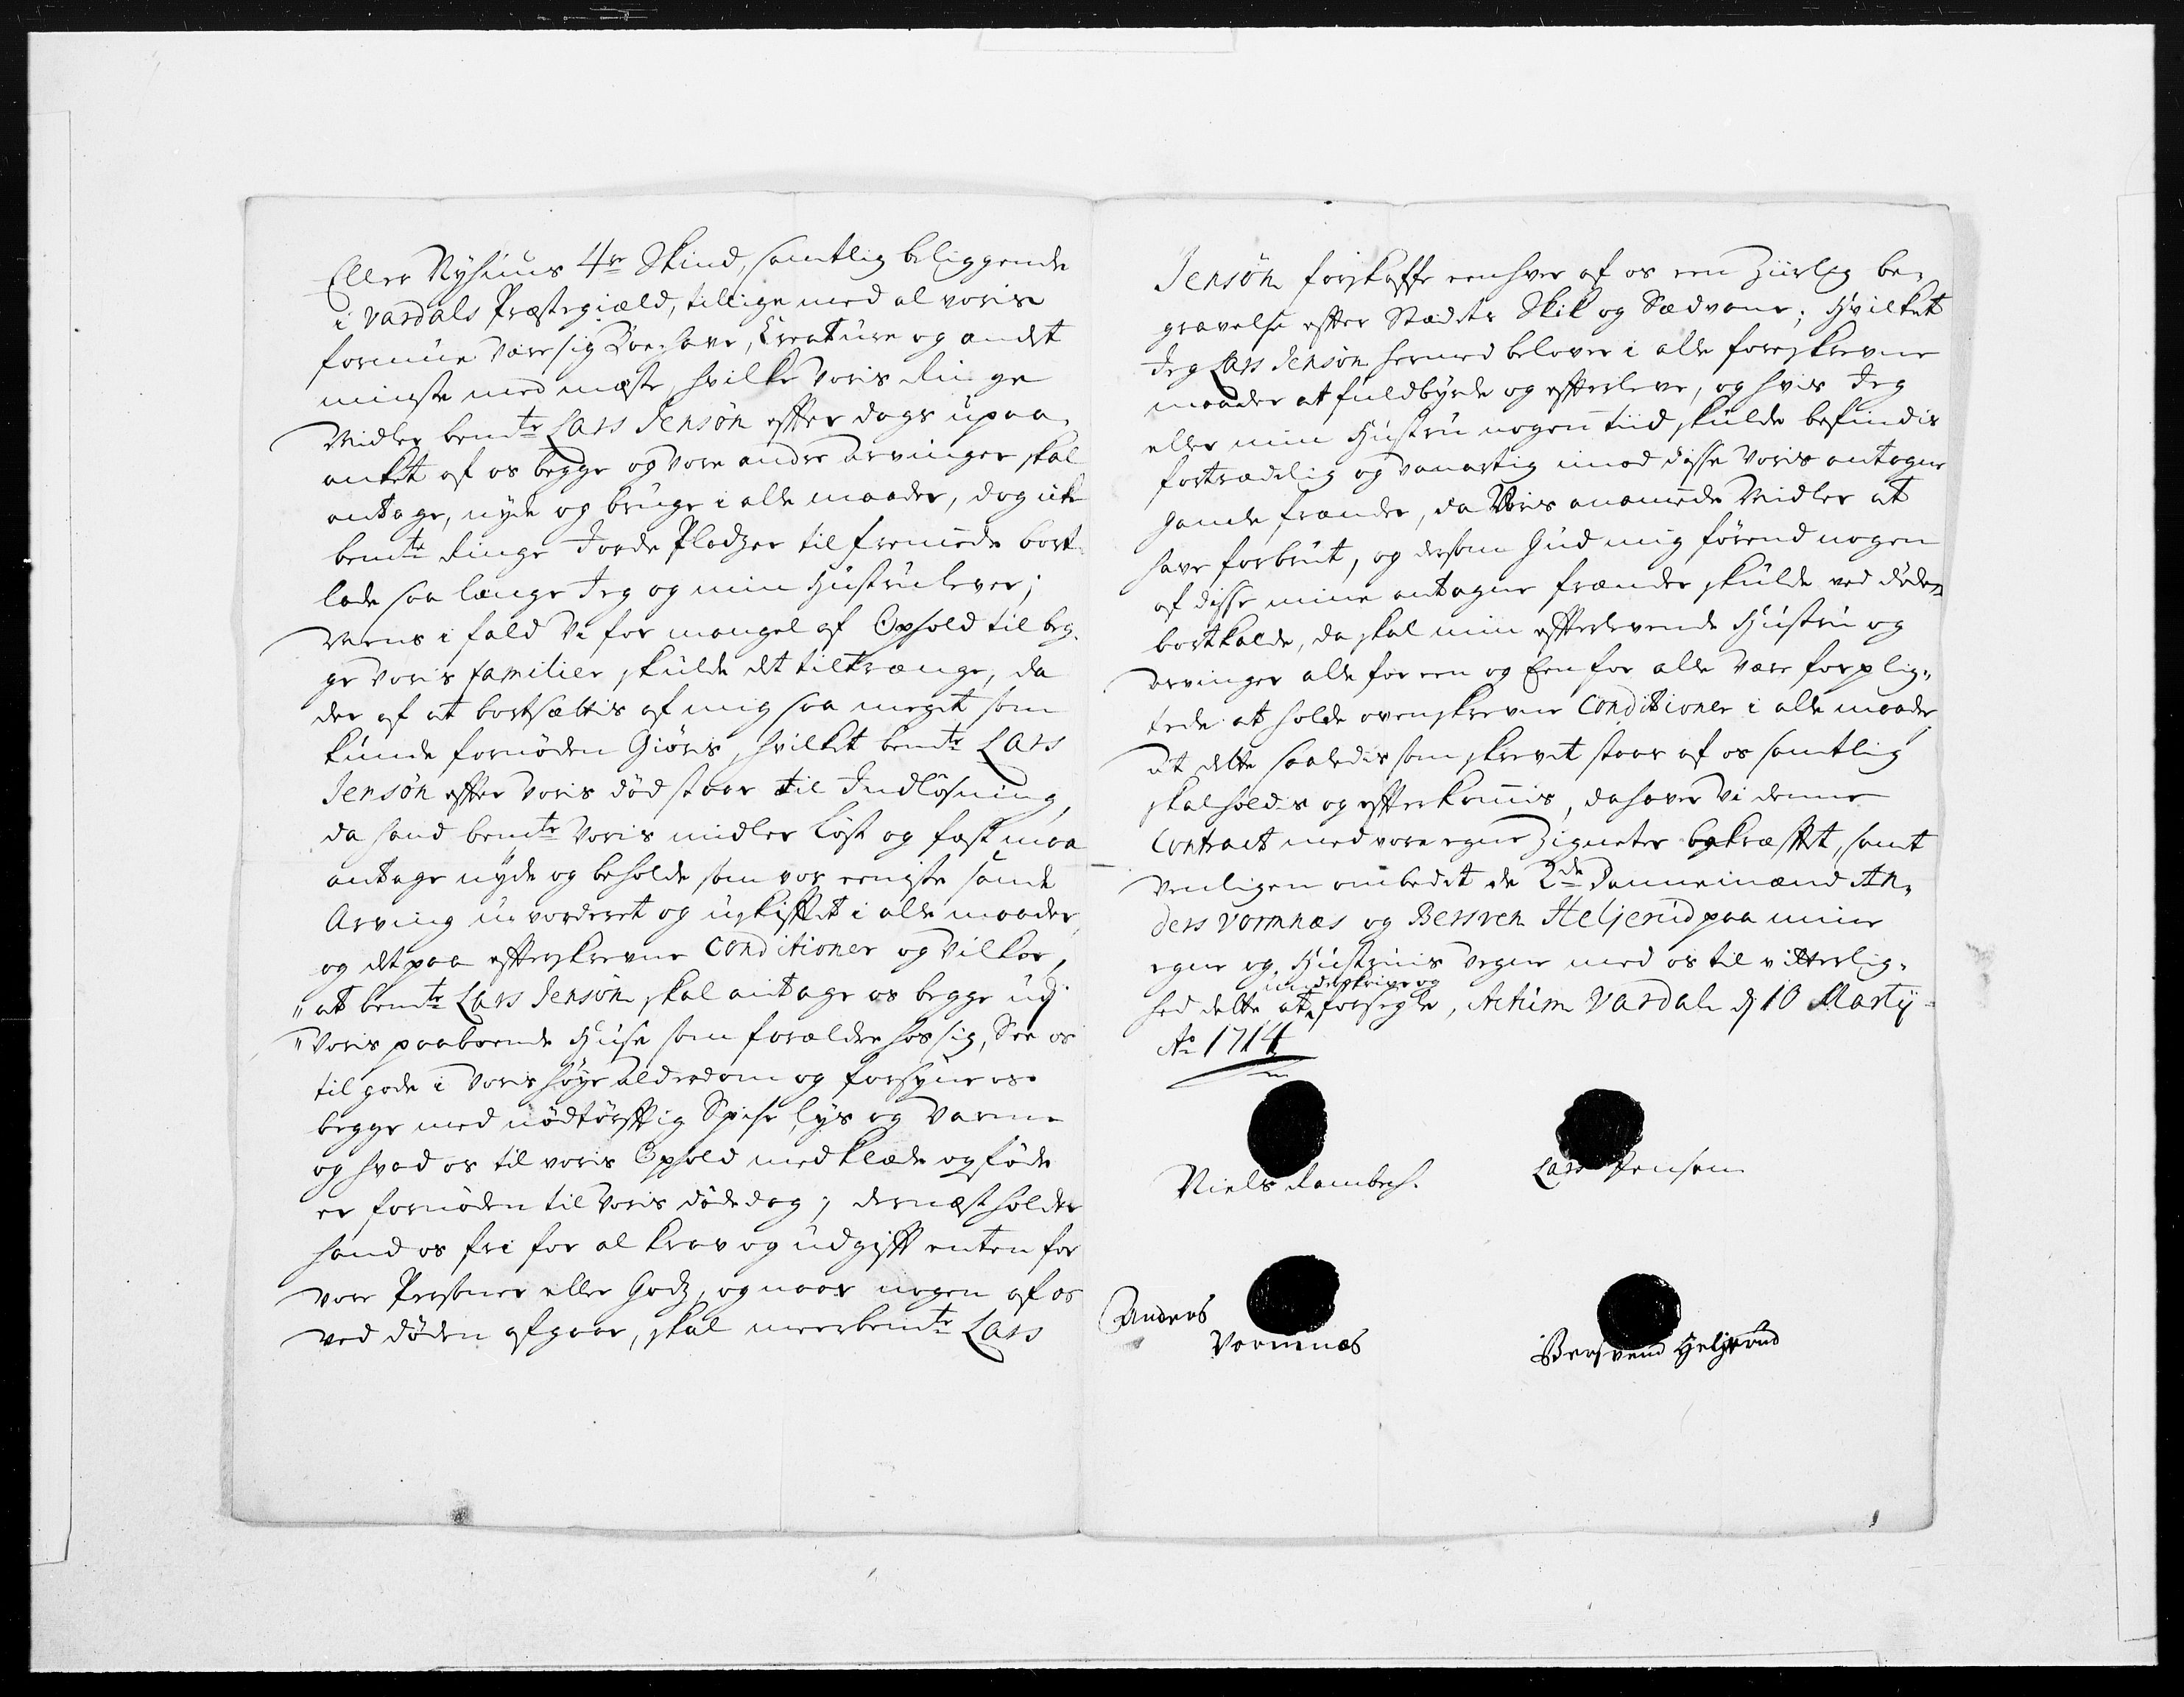 Eller Nyhuus 4re Skind, samtlig beliggende
i Vardals Præstegiæld, tillige med al voris
formue være sig Boehave, Creature og andet
minste med mæste, hvilke voris ringe
Midler bemte Lars Jensøn effter dags upaa-
anket af os begge og vore andre arvinger skal
antage, nyde og bruge i alle maader, dog icke
bemte ringe Jorde Pladzer til fremede bort-
lade saa længe Jeg og min Hustru lever;
Mens i fald Vi for mangel af Ophold til beg-
ge voris familier skulde det tiltrænge, da
der af at bortsættis af mig saa meget som
kunde fornøden Giøris, hvilket bemte Lars
Jensøn effter voris død staar til Indløsning,
da hand bemte voris midler løst og fast maa
antage nyde og beholde som vor eeniste sande
Arving uvorderet og uskifftet i alle maader,
og det paa effterskrevne Conditioner og Vilkor,
" at bemte Lars Jensøn skal antage os begge udj
" Voris paaboende Huse som forældre hos sig, See os
til gode i voris høye alderdom og forsyne os
begge med nødtørfftig Spise lys og Varme
og hvad os til voris Ophold med klæde og føde
er fornøden til Voris dødedag; dernæst holder
hand os fri for al krav og udgifft enten for
vore Personer eller Godz, og naar nogen af os
ved døden afgaar, skal meerbemte Lars
Jensøn forskaffe eenhver af os een Ziirlig be-
gravelse effter Stædets Skik og Sædvane; Hvilket
Jeg Lars Jensøn hermed belover i alle foreskrevne
maader at fuldbyrde og effterleve, og hvis Jeg
eller min Hustru nogen tiid skulde befindis
fortrædelig og vanartig imod disse Voris antagne
gamle frænder, da Voris anamede Midler at
have forbrut, og dersom Gud mig førend nogen
af disse mine antagne frænder skulde ved døden
bortkalde, da skal min effterlevende Hustru og
arvinger alle for een og Een for alle være forplig-
tede at holde ovenskrevne Conditioner i alle maader
At dette saaledis som skrevet staar af os samtlig
skal holdis og effterkommis, da haver Vi denne
Contract med vore egne Zigneter bekræfftet, samt
venligen ombedet de 2de Dannemænd An-
ders Vormnæs og Bersven Heljerud paa mine
egne og Hustruis vegne med os til vitterlig-
underskrive og
hed dette at forsegle, Actum Vardal d 10 Marty
Ao 1714
Niels Rambech.
Lars Jensen
Anders
Vormnæs
Bersvend Heljerud